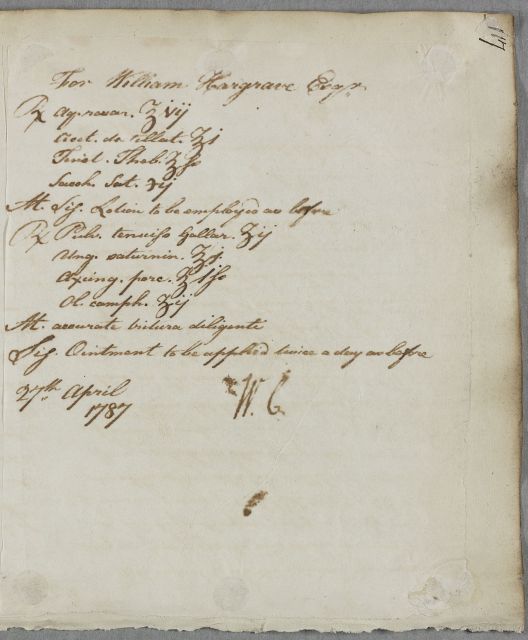 For William Hargrave Esqr.
℞ Aq. rosar. ℥vij
Acet. destillat. ℥j
Tinct. Theb. ℥ſs
Sacch. Sat. ʒij
M. Sig. Lotion to be employed as before
℞ Pulv. tenuiss Gallar. ʒij
Ung. saturnin. ℥j.
Axung. porc. ℥jſs
Ol. camph. ʒij
M. accurate tritura diligente
Sig. Ointment to be applied twice a day as before
27th April
1787
W. C.